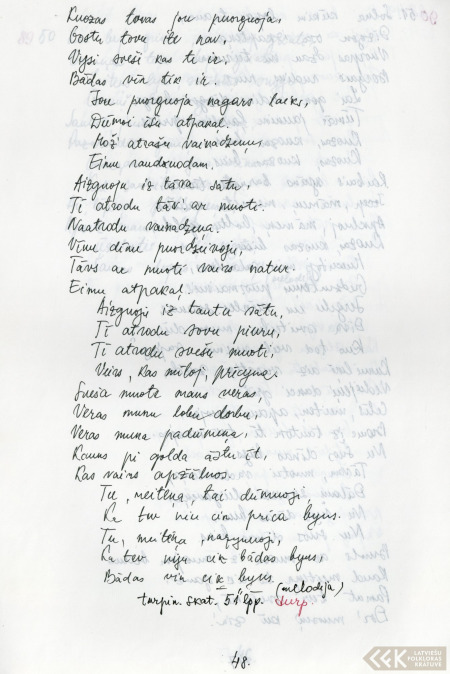 Ruozas tovas jou puorguoja,
Gostu tovu iļe nav,
Vysi sveši kas ti ir,
Bādas vīn tik ir.
Jou puorguoja nagars laiks,
Dūmoi īšu atpakaļ.
Mož atrašu vainadzeņu,
Eimu raudzuodam.
Aizguoju iz tāva sātu,
Tī atrodu tāv' ar muoti.
Naatrodu vainadzeņa.
Vīnu dīnu puordzeivuoju,
Tāvs ar muoti vairs natur.
Eimu atpakaļ.
Aizguoju iz tautu sātu,
Tī atrodu sovu pieuru,
Tī atrodu svešu muoti,
Veirs, kas miloj, prīcyna.
Sveša muote maņs veras,
Veras munu lobu dorbu,
Veras muna padūmeņa,
Kauns pi golda āstu īt,
Kas vairs apžālnos.
Tu, meiteņa, tai dūmuoji,
Ka tev viņ cik prīca byus.
Tu, meiteņa, nazynuoji,
Ka tev viņa cik bādas byus,
Bādas vīn cik byus.
(melodija)
turpin. skat. 51 lpp. turp
48.
LATVIEŠU
FOLKLORAS
KRĀTUVE